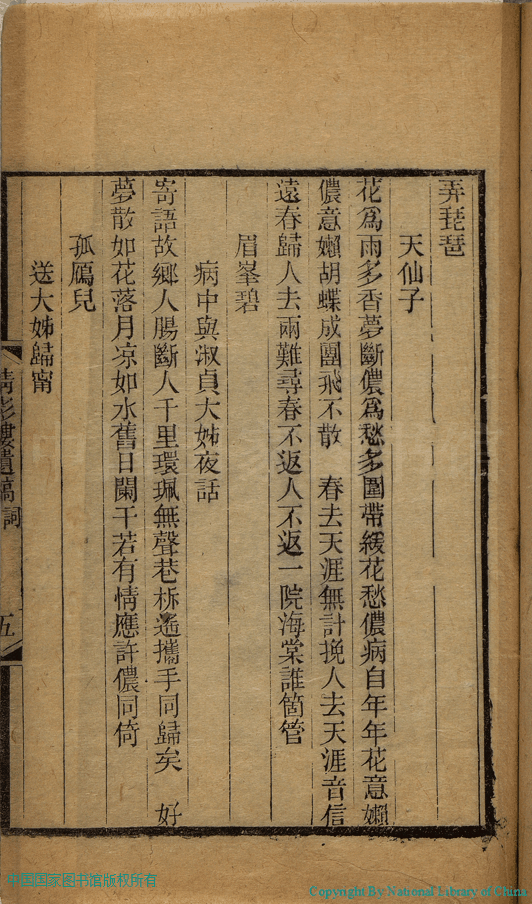 弄琵琶
天仙子
花爲雨多香夢斷儂爲愁多圍帶緩花愁儂病自年年花意嬾
儂意嬾胡蝶成團飛不散　春去天涯無計挽人去天涯音信
遠春歸人去兩難尋春不返人不返一院海棠誰箇管
眉峯碧
病中與淑貞大姊夜話
寄語故鄉人腸斷人千里環珮無聲巷柝遙攜手同歸矣　好
夢散如花落月凉如水舊日闌干若有情應許儂同倚
孤鴈兒
送大姊歸甯
樓遺稿 詞
五
中国国家图书馆版权所有
Copyright By National Library of China